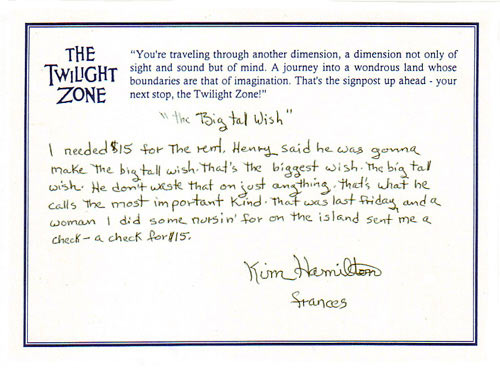 THE
TWILIGHT
ZONE
"You're traveling through another dimension, a dimension not only of
sight and sound but of mind. A journey into a wondrous land whose
boundaries are that of imagination. That's the signpost up ahead - your
next stop, the Twilight Zone!"
"the Big tal Wish"
I needed $15 for The rent. Henry said he was gonna
make The big tall wish. That's the biggest wish. The big tal
wish. He don't waste that on just anything. that's what he
calls The most important Kind. That was last friday, and a
woman I did some nursin' for on the island sent me a
check - a check for $15.
Kim Hamilton
frances